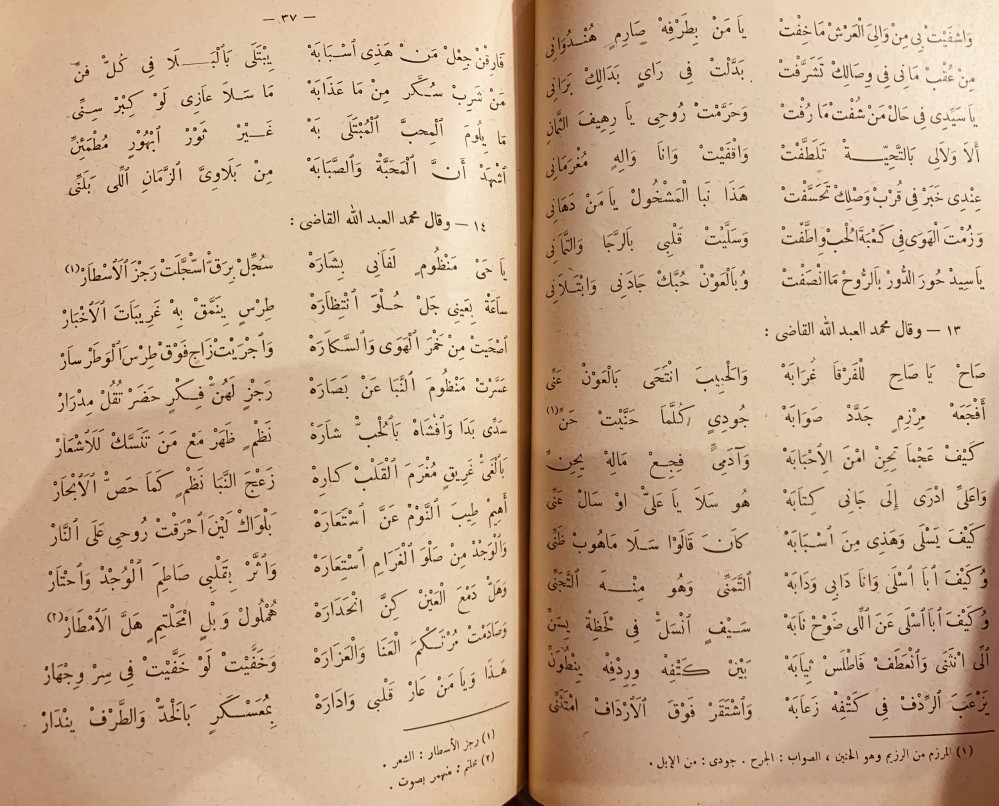 وَاشْفَيْتْ بِي مِنْ وَالِىَ الْعَرْشْ مَا خِفْتْ يَا مَنْ بِطَرْفِهْ صَارِمٍ هُنْدُوَانِى
مِنْ عُقْبْ مَانِى فِى وِصَالِكْ تَشَرَّفْتْ بَدَّلْتْ فِى رَايٍ بَدَالِكْ بَرَانِى
يَا سَيِّدِى فِى حَالْ مَنْ شُفْتْ مَا رُفْتْ وَحَرَّمْتْ رُوحِى يَا رِهِيفَ الثَّمَانِ
أَلَا وَلَالَى بِالتَّحِيَّةْ تَلَطَّفْتْ وَاقْفَيْتْ وَانَا وَالِهٍ مُغْرَمَانِى
عِنْدِى خَبَرْ فِى قُرْبْ وَصْلِكْ تَحَسَّفْتْ هَذَا نَبَا الْمَشْخُولْ يَا مَنْ دَهَانِى
وَزُمْتَ الْهَوَى فِى كَعْبَةَ الْحُبّْ وِاطَّفْتْ وَسَلَّيْتْ قَلْبِى بِالرَّجَا وَالتَّمَانِى
يَا سِيدْ حُورَ الدُّورْ بِالرُّوحْ مَا انْصَفْتْ وُبَالْعَوْنْ حُبَّكْ جَاذَنِى وَابْتَلَانِى
١٣ – وقال محمد العبد الله القاضى :
صَاحْ يَا صَاحِ لْلْفَرْقَا غَرَابَهْ وَالْحَبِيبَ انْتَحَى بَالْعَوْنْ عَنِّى
أَفْجَعَهْ مِرْزِمٍ جَدَّدْ صَوَابَهْ جُودِىٍ كُلَّمَا حَنَّيْتْ حَنِّ (١)
كَيْفْ عَجْمَا تِحِنْ امْنَ الِاحْبَابَهْ وَآدَمِىٍّ فِجِعْ مَالِهْ يِحِنِّ
وَاعَلِىَّ ادْرَى إِلَى جَانِى كِتَابَهْ هُو سَلَا يَا عَلِىْ اوْ سَالْ عَنِّى
كَيْفْ يَسْلَى وَهَذِى مِنَ اسْبَابَهْ كَانْ قَالَوْا سَلَا مَاهُوبْ ظَنِّى
وُكَيْفْ ابَا اسْلَى وَانَا دَابِى وَدَابَهْ التَّمَنِّى وَهُو مِنْهَ التِّجَنِّى
وُكَيْفْ ابَا اسْلَى عَنَ اللِّى ضَوْحْ نَابَهْ سَيْفٍ انْسَلّْ فِى لَحْظِةْ بِسِنِّ
الِّى انْثَنَى وَالْعَطَفْ فَاطْلَسْ ثِيَابَهْ بَيْنْ كَتْفِهْ وِرِدْفِهْ يِنْطُوَنِّ
يَزْعَبَ الرِّدْفْ فِى كَتْفِهْ زَعَابَهْ وَاسْتَقَرْ فَوْقَ الْأَرْدَافَ امْتَثَنِّى
(١) المرزم من الرزيم وهو الحنين ، الصواب : الجرح . جودى : من الإبل .
— ٣٧ —
فَارِقْنْ جِعْلْ مَنْ هَذِى اسْبَابَهْ يِبْتَلَى بَالْبَلَا فِى كُلّْ فَنِّ
مَنْ شَرِبْ سُكَّرٍ مِنْ مَا عَذَابَهْ مَا سَلَا عَازِى لَوْ كِبْرْ سِنِّى
مَا يِلُومَ الْمِحِبَّ الْمُبْتَلَى بَهْ غَيْرْ ثَوْرَ ابْهُورٍ مُطْمَئِنِّ
اشْهَدْ أَنَّ الْمَحَبَّةْ وَالصَّبَابَهْ مِنْ بَلَاوِىَ الزَّمَانِ اللِّى بَلَنِّى
١٤ – وقال محمد العبد الله القاضى :
يَا حَىْ مَنْظُومٍ لَفَانِى بِشَارَهْ سُجِّلْ بِرَقٍّ اسْجَلَتْ رَجْزَ الْأَسْطَارْ (١)
سَاعَةْ بِعَينِى جَلْ حُلْوَ انْتِظَارَهْ طِرْسٍ يِنَمَّقْ بِهْ غَرِيبَاتَ الْأَخْبَارْ
اصْحَيْتْ مِنْ خَمْرَ الْهَوَى وَالسَّكَارَهْ وَاجْرَيْتْ زَاجٍ فَوْقْ طِرْسَ الْوَطَرْ سَارْ
عَبَّرْتْ مَنْظُومَ النَّبَا عَنْ بَصَارَهْ رَجْزٍ لَهُنْ فِكْرٍ حَضَرْ تُقُلْ مِدْرَارْ
سَدِّى بَدَا وَأَفْشَاهْ بَالْحُبّْ شَارَهْ نَظْمٍ ظَهَرْ مَعْ مَنْ تَنَسَّكْ لَلْأَشْعَارْ
بَالْغَىْ غَرِيقٍ مُغْرَمَ الْقَلْبْ كَارِهْ زَعْجَ النَّبَا نَظْمٍ كَمَا حَصَّ الْأَبْحَارْ
أَهِيمْ طِيبَ النَّوْمْ عَنَّ اسْتَعَارَهْ بَلْوَاكْ لَيْنَ احْرَقْتْ رُوحِى عَلَى النَّارْ
وَالْوَجْدْ مِنْ صَلْوَ الْغَرَامِ اسْتِعَارَهْ وَاثَّرْ بِقَلْبِى صَاطِىَ الْوُجْدْ وَاحْتَارْ
وَهَلّْ دَمْعَ الْعَيْنْ كِنَّ انْحَدَارَهْ هُمْلُولْ وَبْلٍ انْحَلْتِيمٍ هَلَّ الْأَمْطَارْ (٢)
وَصَادَمْتْ مُرْتَكَمَ الْعَنَا وَالْعَزَارَهْ وَخَفَّيْتْ لَوْ خَفَّيْتْ فِى سِرْ وِجْهَارْ
هَذَا وَيَا مَنْ عَارْ قَلْبِى وَادَارَهْ بِمُعَسْكَرٍ بَالْخَدّْ وَالطَّرْفْ يِنْدَارْ
(١) رجز الأسطار : الشعر .
(٢) : منهمر بصوت .